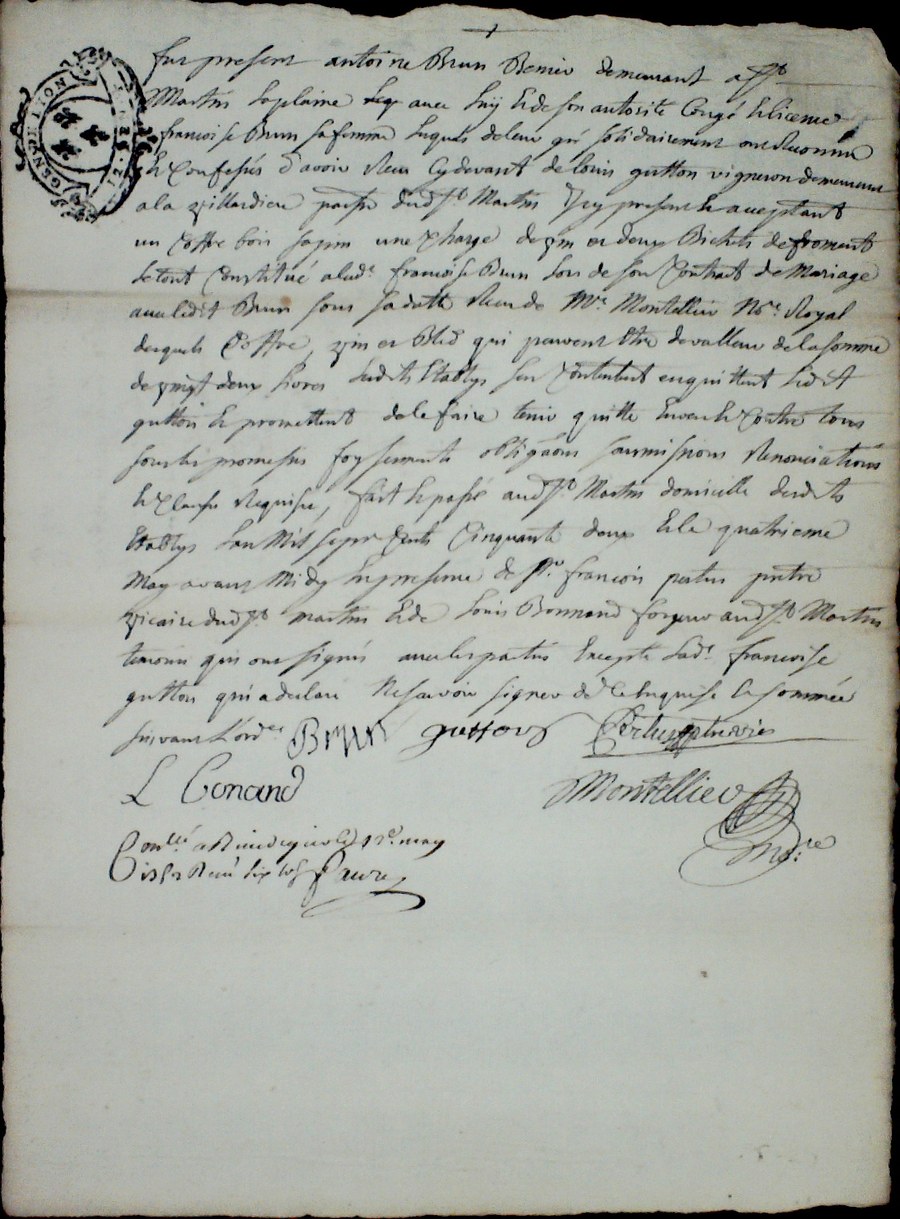 GEN DE LYON
fut present antoine Brun Benier demeurant a St
Martin laplaine leql avec luy et de son autorité Congé et licence
francoise Brun sa femme lequels de leur gré solidairement ont Reconnu
et Confessés d'avoir Reçu cy devant de louis gutton vigneron demeurant
a la villardiere parsse dud St Martin Icy present et acceptant
un Coffre bois sapin une Charge de vin et deux Bichets de froment
le tout Constitué a lad. francoise Brun lors de son Contrat de Mariage
avec ledit Brun sous sa datte Receu de Mre Montellier Nore Royal
desquels Coffre, vin et Bled qui peuvent Etre de valleur de la somme
de vingt deux livres lesdits Etablys sen Contentent en quittent ledit
gutton et promettent de le faire tenir quitte Envers et Contre tous
sous les promesses foy serments obligaons soumissions Renonciations
et Clauses Requises, fait et passé aud St Martin domicille desdits
Etablys lan Mil sept Cents Cinquante deux et le quatrieme
May avant Midy En presence de Sr francois pretre
vicaire dud St martin et de louis Bonnand forgeur aud St Martin
temoins qui ont signés avec les parties Excepté lad. francoise
gutton qui a declaré Ne scavoir signer de ce Enquise et sommée
suivant l'ord.e Brun gutton
L Bonand Montellier
Nore
Conllé a Rivedegier le 12e may
1752 Reçu six sols Faure